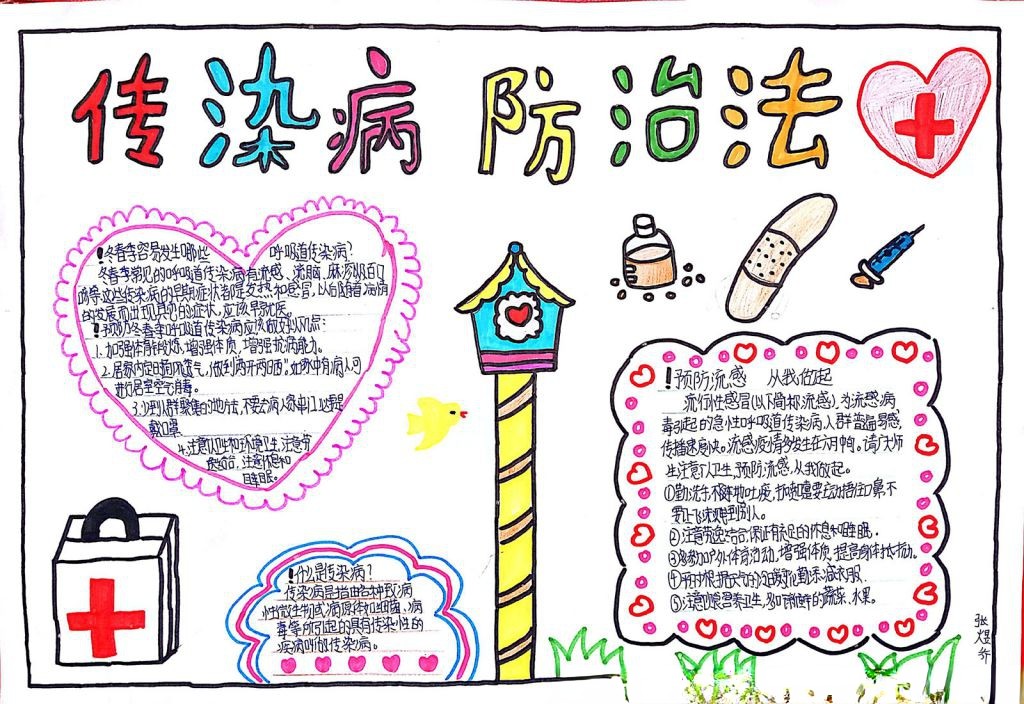 传染病防治法
！冬春季容易发生哪些 呼吸道传染病？
冬春季常见的呼吸道传染病有流感、流脑、麻疹以及百日
咳等这些传染病的早期症状都是发热和感冒，以后随着病情
的发展而出现典型的症状，应该早就医。
！预防冬春季呼吸道传染病应该做好以下几点：
1.加强体育锻炼，增强体质，增强抗病能力。
2.居室内定时开窗换气，做到"两开两晒"，如家中有病人可
进行居室空气消毒。
3.少到人群聚集的地方，不要去病人家串门，必要是
戴口罩
4.注意个人卫生和环境卫生，注意劳
逸结合，注意休息和
睡眠。
！什么是传染病？
传染病是指由各种致病
性微生物或病原体如细菌、病
毒等所引起的具有传染性的
疾病叫做传染病。
！预防流感 从我做起
流行性感冒(以下简称流感)，为流感病
毒引起的急性呼吸道传染病，人群普遍易感，
传播速度快。流感疫情多发生在 请广大师
生注意个人卫生，预防流感，从我做起。
①勤洗手，不随地吐痰，打喷嚏要主动捂住口鼻，不
要让飞沫 到别人。
②注意劳逸结合，保证有充足的休息和睡眠。
③多参加户外体育活动，增强体质，提高身体抵抗力。
④ 根据天气的 变化勤添减衣服。
⑤注意饮食营养卫生，多吃新鲜的蔬菜、水果。
张煜乔